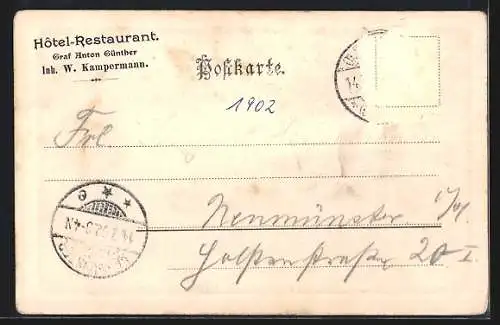 Hôtel-Restaurant.
Graf Anton Günther
Inh. W. Kampermann.
Postkarte.
1902
Frl
Neumünster i/H.
Holstenstraße 20 I.